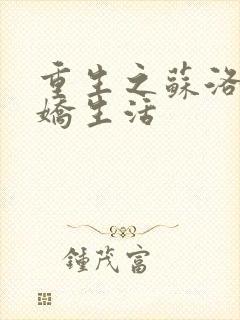 重生之蘇洛
嬌生活
鍾茂富